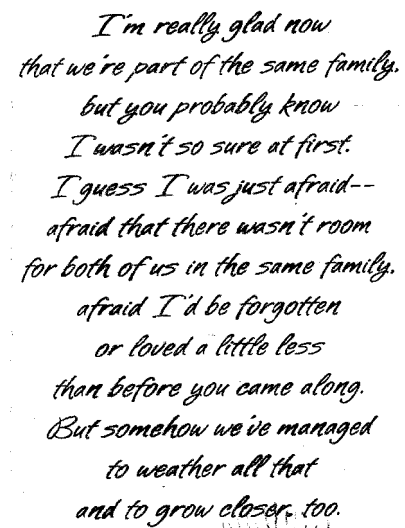 I'm really glad now
that we're part of the same family.
but you probably know
I wasn't so sure at first.
I guess I was just afraid--
afraid that there wasn't room
for both of us in the same family.
afraid I'd be forgotten
or loved a little less
than before you came along.
But somehow we've managed
to weather all that
and to grow closer, too.